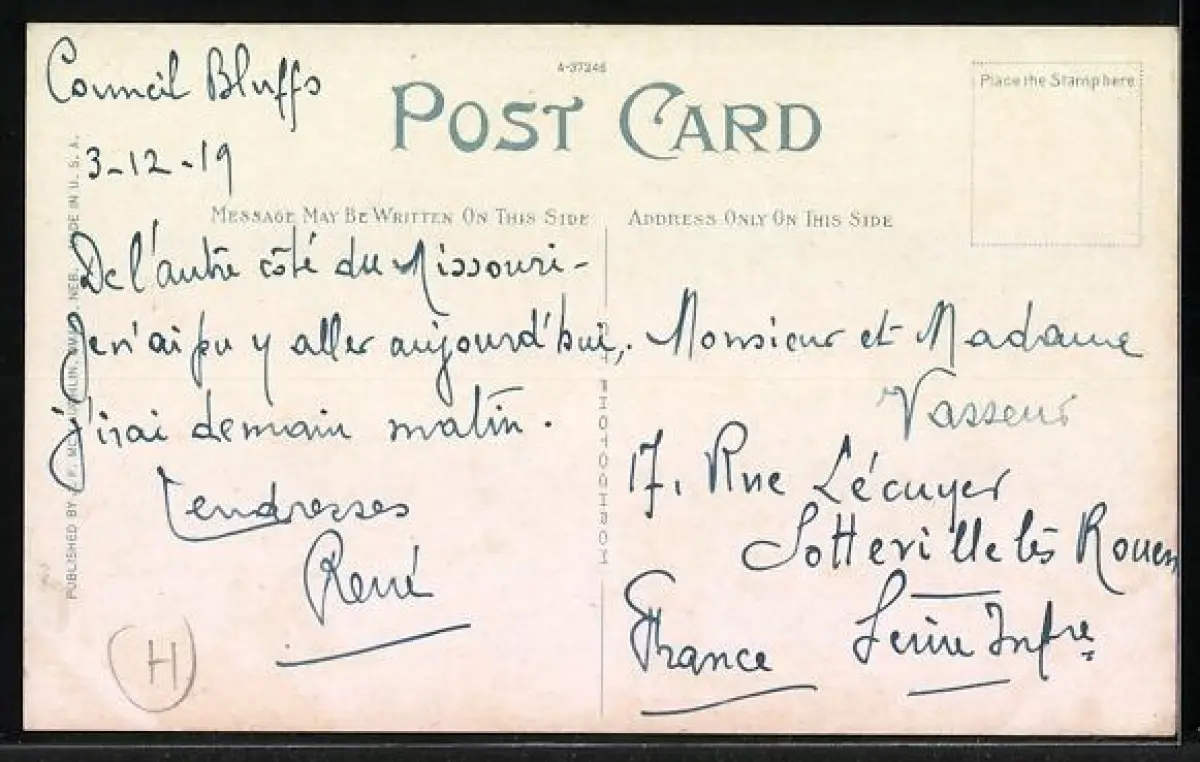 Council Bluffs
3-12-19
A-37246
POST CARD
Place the Stamp here
MESSAGE MAY BE WRITTEN ON THIS SIDE
ADDRESS ONLY ON THIS SIDE
De l'autre côté du Missouri -
Je n'ai pu y aller aujourd'hui,
j'irai demain matin.
Tendresses
René
H
Monsieur et Madame
Vasseur
17, Rue Lécuyer
Sotteville lès Rouen
Seine Infre
France
PUBLISHED BY NEB. MADE IN U. S. A.